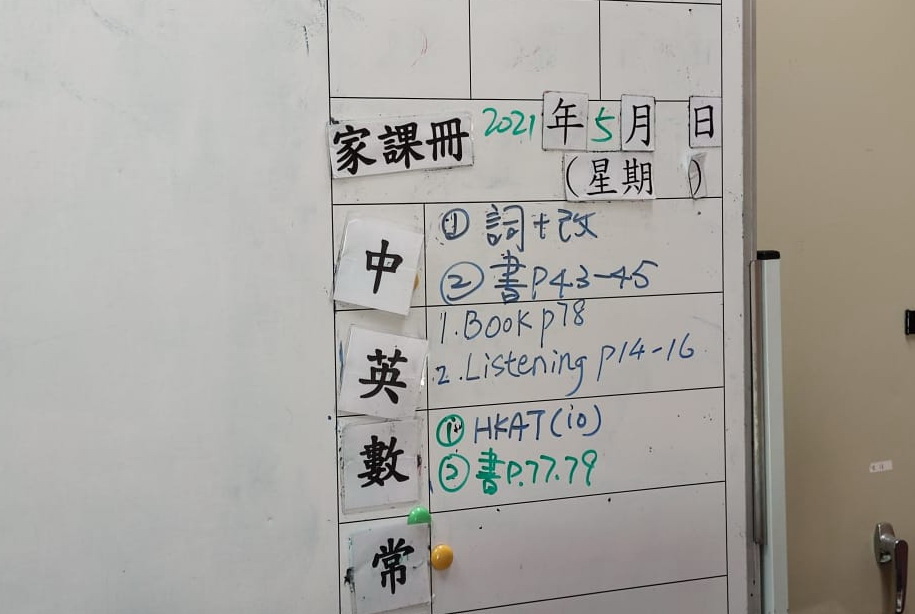 家課冊 2021年5月 日
(星期 )
中 ① 詞+改
② 書P43-45
英 1.Book p78
2.Listening p14-16
數 ① HKAT(10)
② 書P.77.79
常